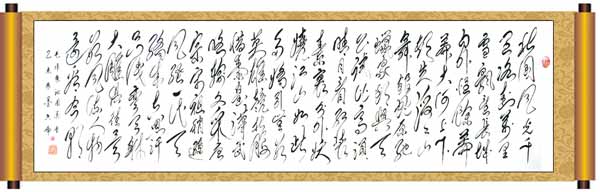 北国风光千
里冰封万里
雪飘望长城
内外惟余莽
莽大河上下
顿失滔滔山
舞银蛇原驰
蜡象欲与天
公试比高须
晴日看红装
素裹分外妖
娆江山如此
多娇引无数
英雄竞折腰
惜秦皇汉武
略输文采唐
宗宋祖稍逊
风骚一代天
骄成吉思汗
只识弯弓射
大雕俱往矣
数风流人物
还看今朝
毛泽东沁园春雪